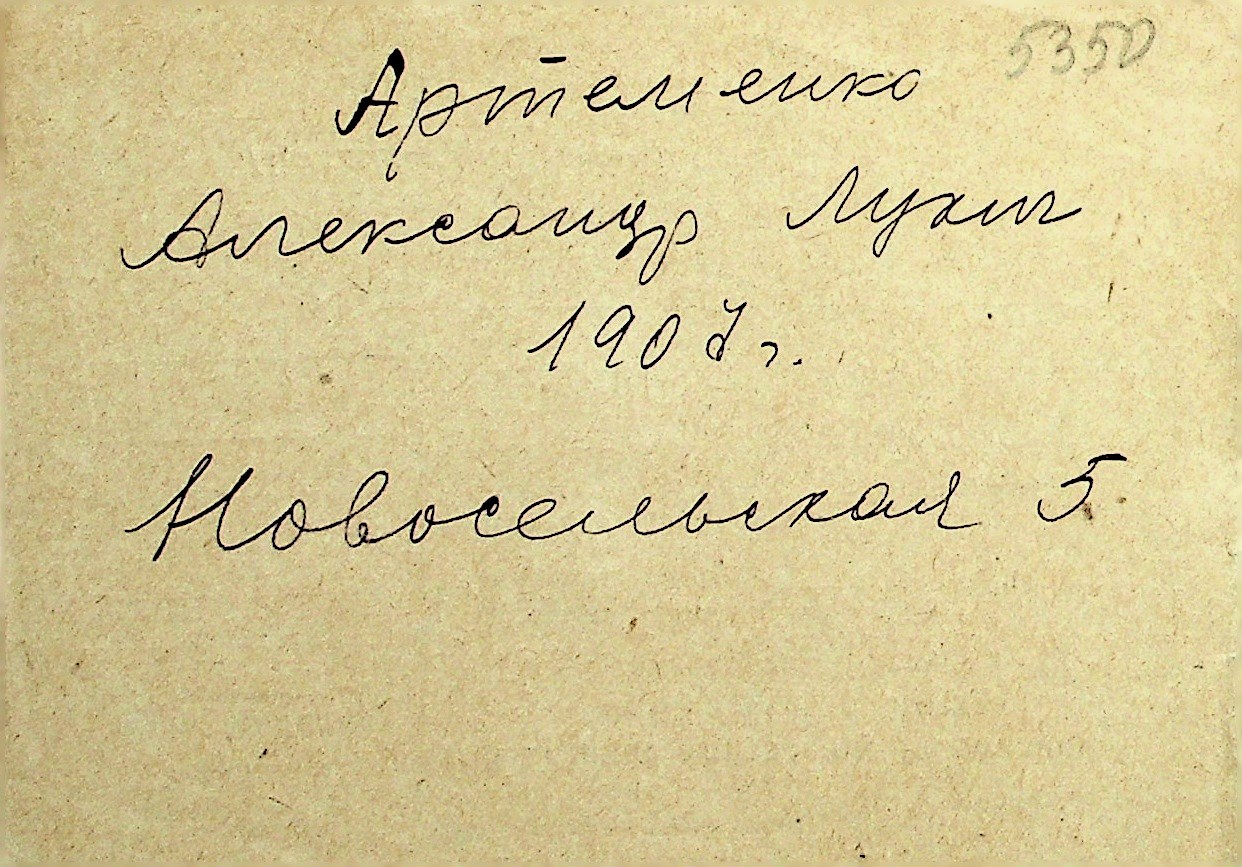 5350
Артеменко
Александр Лукич
1907г.
Новосельская 5